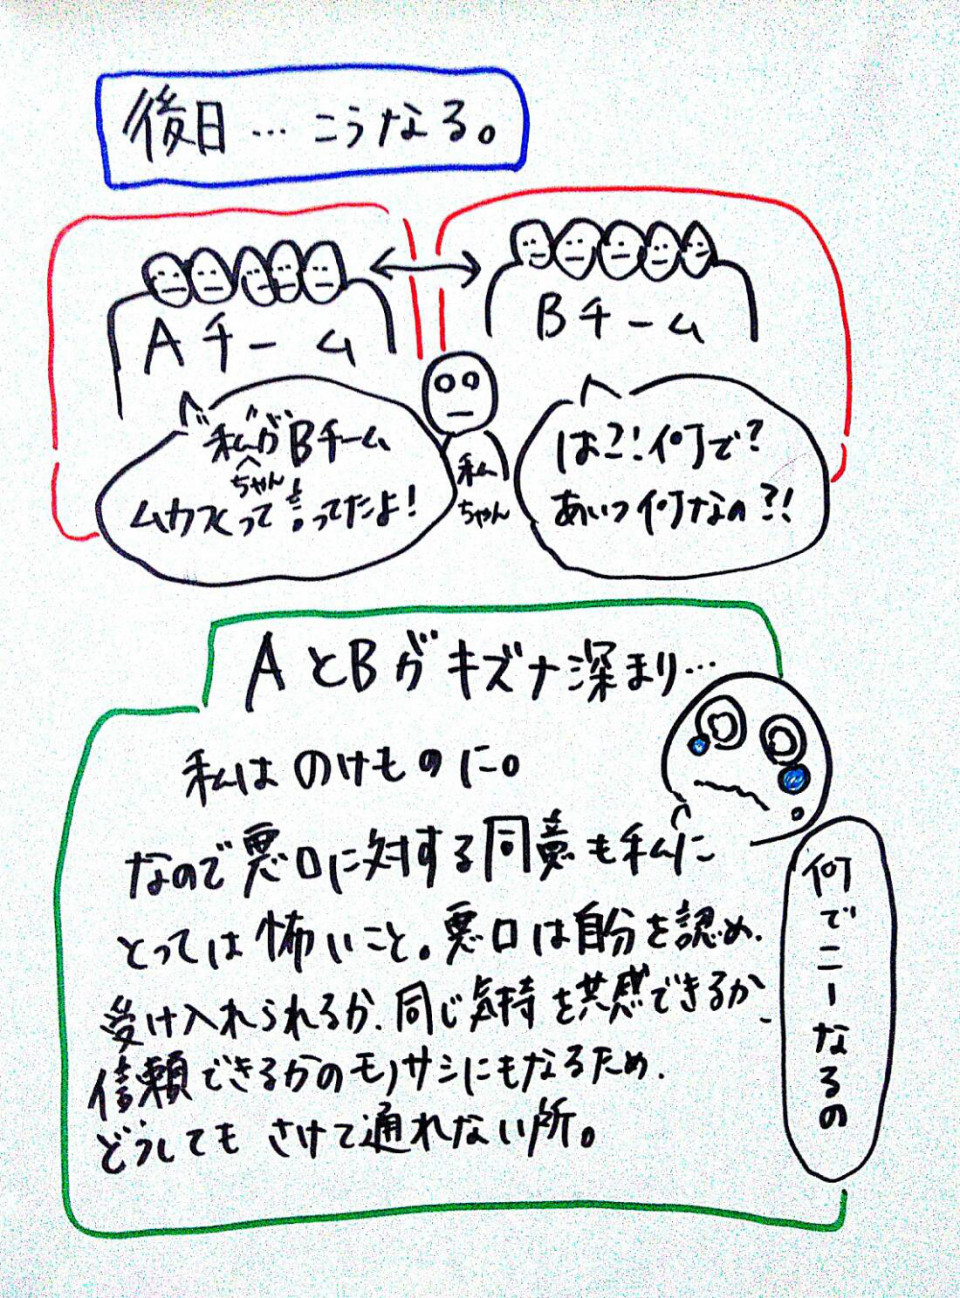 後日…こうなる。
Aチーム
Bチーム
"私"が Bチーム
ちゃん
ムカつくって言ってたよ!
私
ちゃん
はこ!何で?
あいつ何なの?!
AとBがキズナ深まり…
私は のけものに。
なので悪口に対する同意も私に
とっては 怖いこと。悪口は自分を認め、
受け入れられるか、同じ気持を共感できるか、
信頼できるかのモノサシにもなるため、
どうしても さけて通れない所。
何でこーなるの